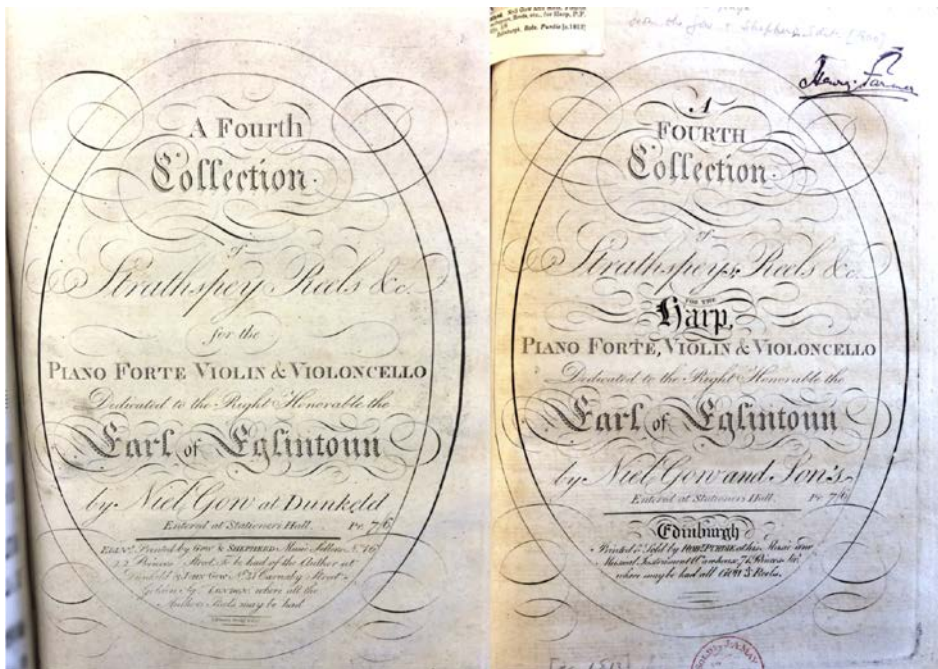 A Fourth
Collection
of
Strathspey Reels &c.
for the
PIANO FORTE VIOLIN & VIOLONCELLO
Dedicated to the Right Honorable the
Earl of Eglintoun
by Niel Gow at Dunkeld
Entered at Stationers Hall. Pr. 7/6
Printed by GOW & SHEPHERD Music Sellers
Princes Street. To be had of the Author at
Dunkeld & JOHN GOW Carnaby Street
LONDON where all the
Authors Reels may be had
Henry Farmer
A
FOURTH
Collection
of
Strathspeys, Reels &c.
FOR THE
Harp,
PIANO FORTE, VIOLIN & VIOLONCELLO
Dedicated to the Right Honorable the
Earl of Eglintoun
by Niel Gow and Son's
Entered at Stationers Hall. Pr. 7/6
Edinburgh
Printed & Sold by ROBT. PURDIE at his Music and
Musical Instrument Warehouse, Princes Str.
where may be had all GOW'S Reels.